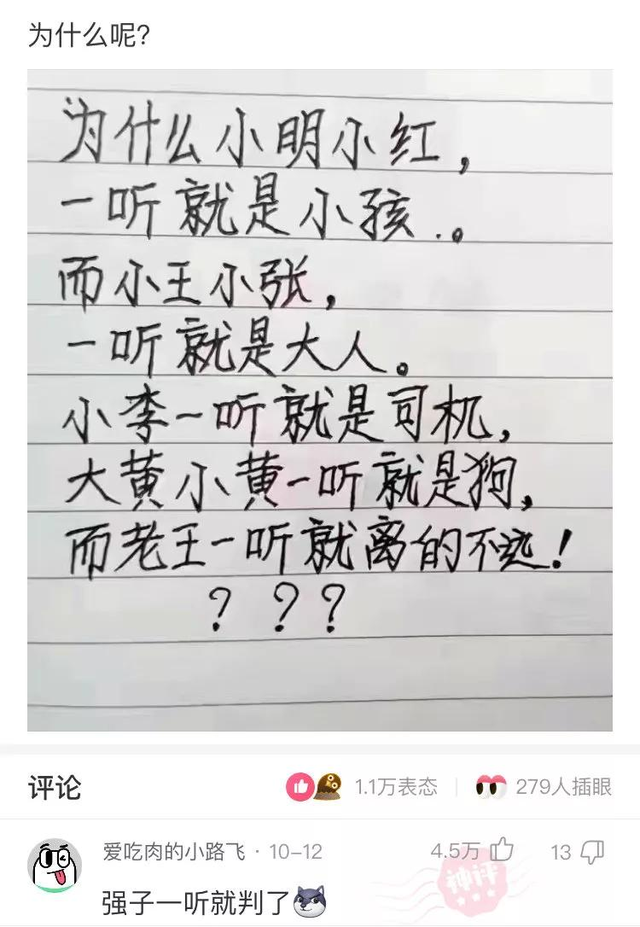 为什么呢?
为什么小明小红,
一听就是小孩.。
而小王小张,
一听就是大人。
小李一听就是司机,
大黄小黄一听就是狗,
而老王一听就离的不远!
???
评论
1.1万表态
279人插眼
爱吃肉的小路飞 · 10-12
4.5万
13
强子一听就判了
神评